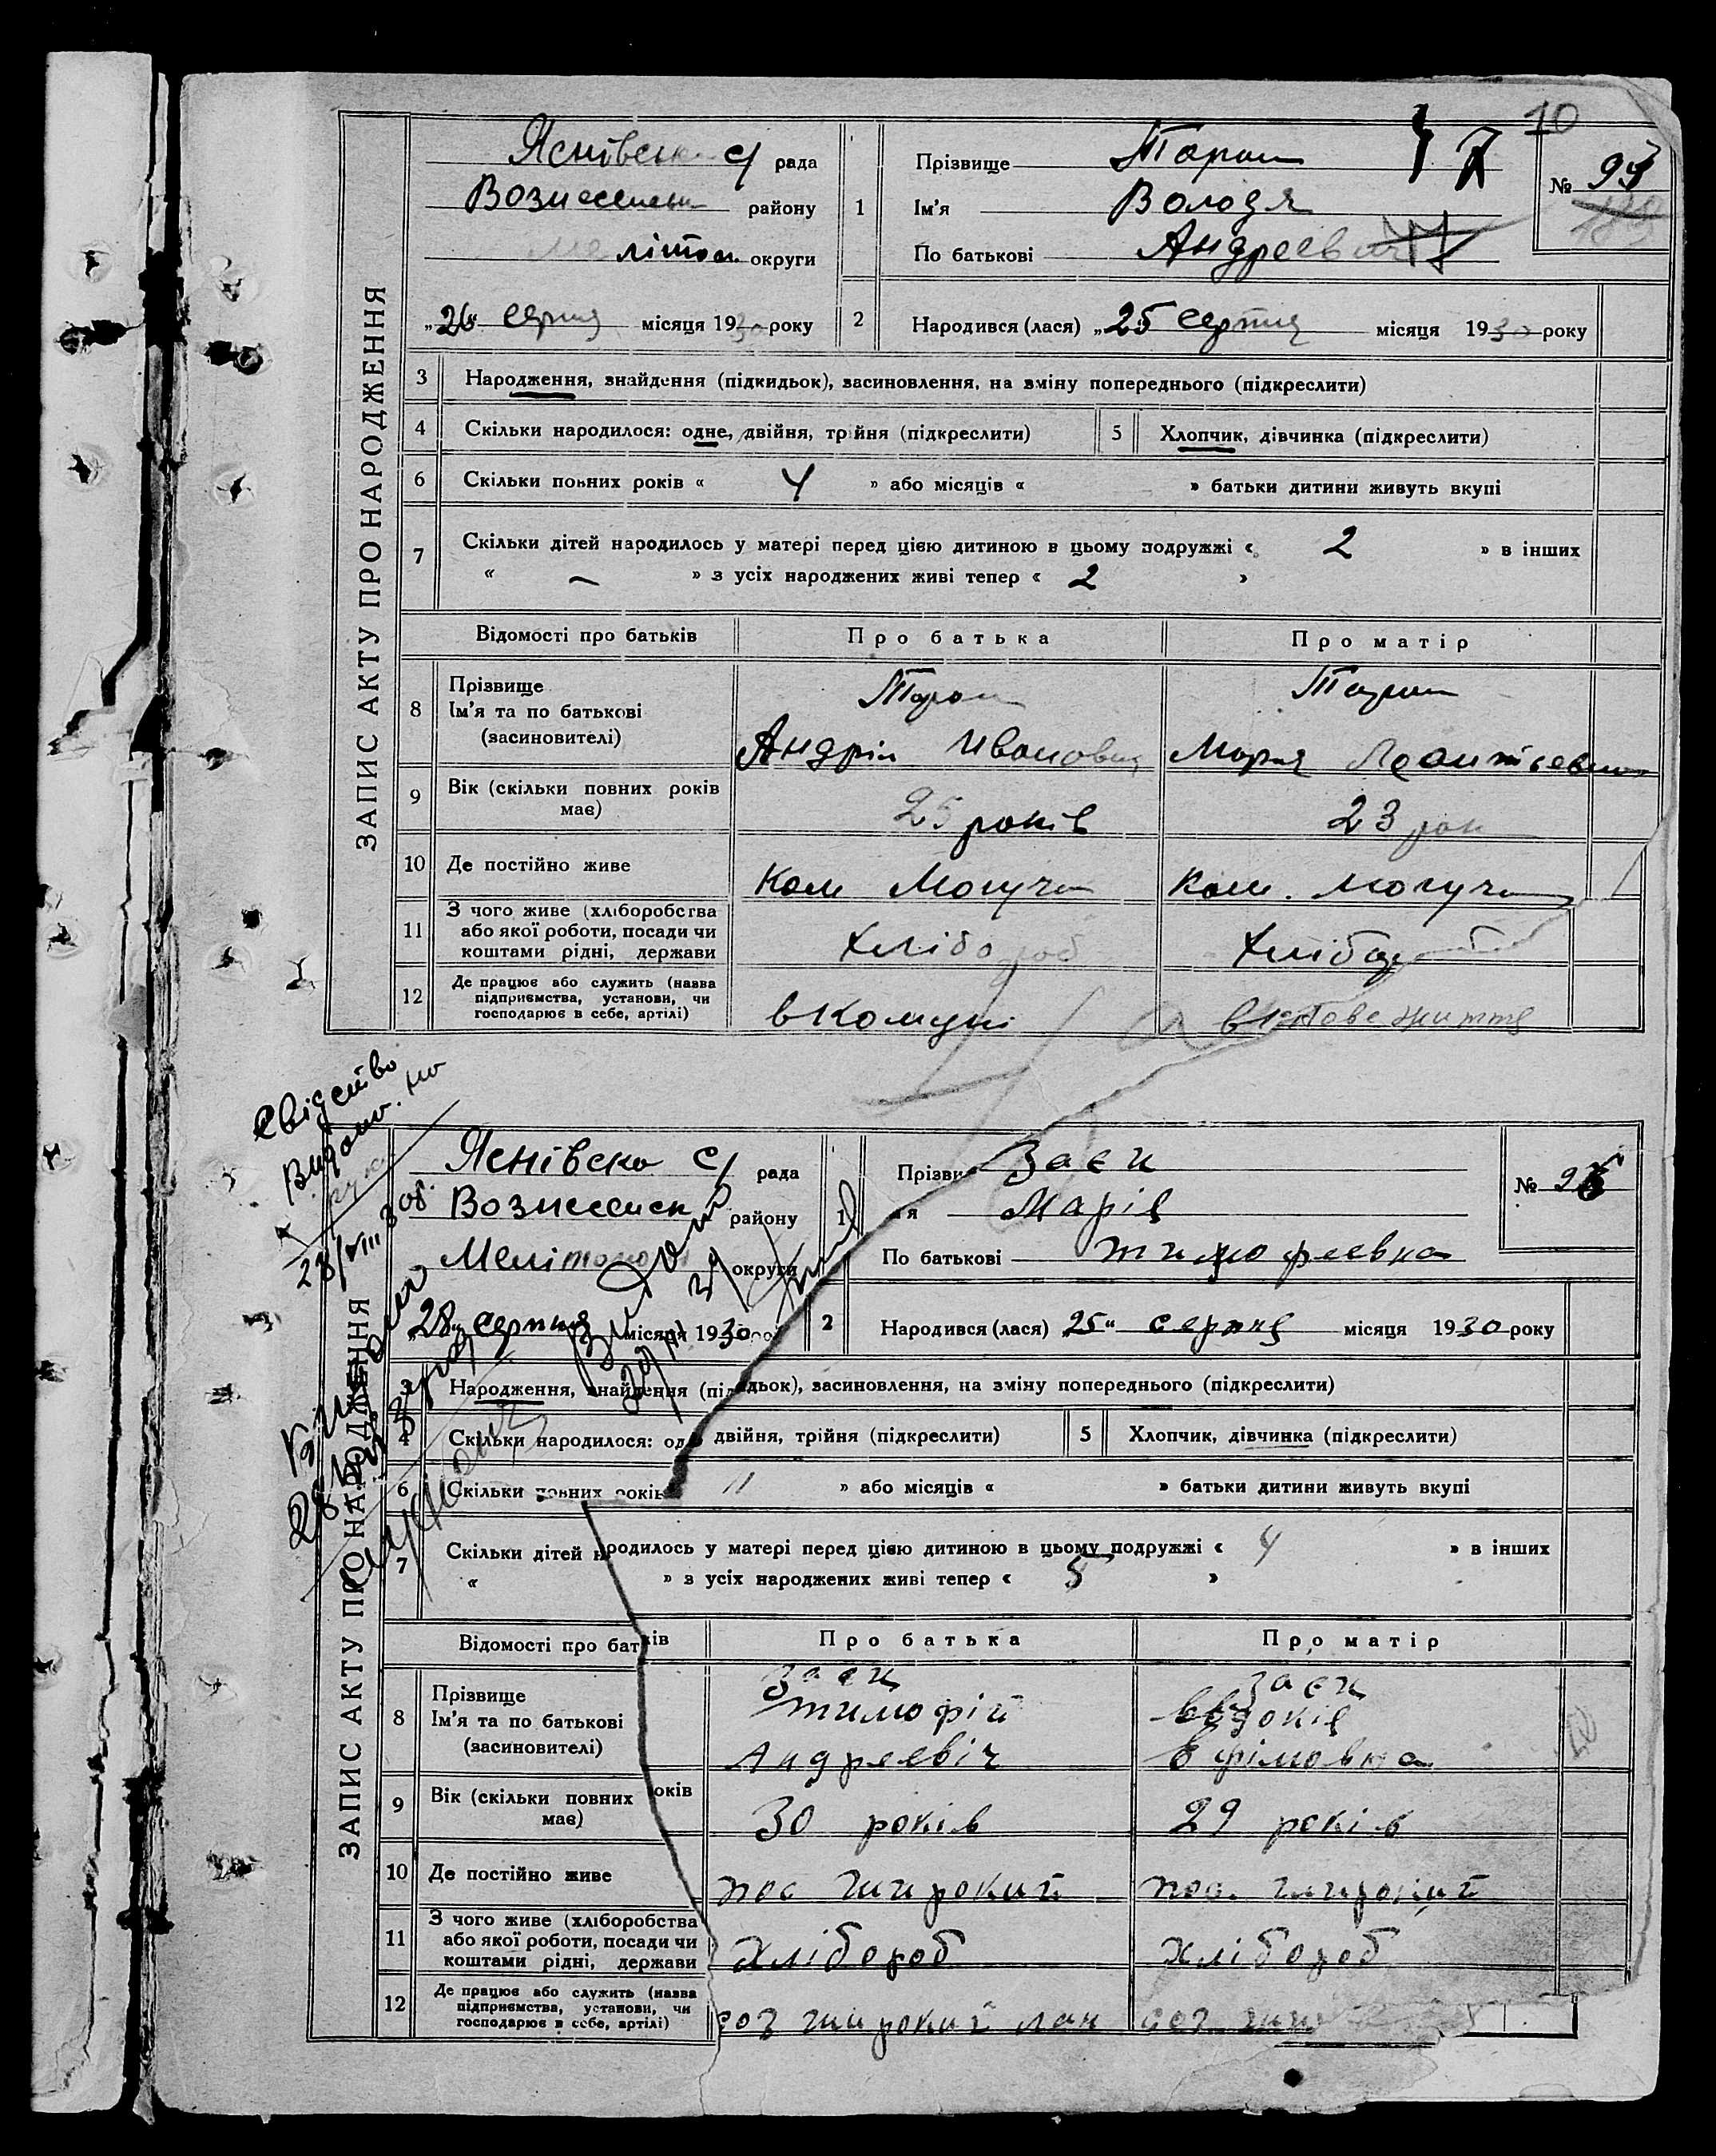 10
ЗАПИС АКТУ ПРО НАРОДЖЕННЯ
Яснівськ с/ рада
Вознесенськ району
Мелітоп. округи
„26“ серпня місяця 1930 року
1
Прізвище Таран
Ім'я Володя
По батькові Андреевич
№ 93
2 Народився (лася) „25 серпня місяця 1930 року
3 Народження, знайдення (підкидьок), засиновлення, на зміну попереднього (підкреслити)
4 Скільки народилося: одне, двійня, трійня (підкреслити) 5 Хлопчик, дівчинка (підкреслити)
6 Скільки повних років « 4 » або місяців « » батьки дитини живуть вкупі
7 Скільки дітей народилось у матері перед цією дитиною в цьому подружжі « 2 » в інших
« – » з усіх народжених живі тепер « 2 »
Відомості про батьків Про батька Про матір
8 Прізвище Ім'я та по батькові (засиновителі)
Таран Таран
Андрій Иванович Мария Леонтьевна
9 Вік (скільки повних років має) 25 років 23 рок
10 Де постійно живе Ком Могуча Ком. Могуча
11 З чого живе (хліборобства або якої роботи, посади чи коштами рідні, держави хлібороб хлібороб
12 Де працює або служить (назва підприємства, установи, чи господарює в себе, артілі) в комуні
Нове життя
Свідоцтво
Видано. на
руки
28/VIII 30 р.
ЗАПИС АКТУ ПРО НАРОДЖЕННЯ
Яснівско с/ рада
Вознесенск району
Мелітополь округи
„28“ серпня місяця 1930 року
1
Прізви Заєц
м'я Марія
По батькові тимофеевна
№ 96
2 Народився (лася) 25“ серпня місяця 1930 року
3 Народження, знайдення (під дьок), засиновлення, на зміну попереднього (підкреслити)
4 Скільки народилося: од двійня, трійня (підкреслити) 5 Хлопчик, дівчинка (підкреслити)
6 Скільки повних років 11 » або місяців « » батьки дитини живуть вкупі
7 Скільки дітей народилось у матері перед цією дитиною в цьому подружжі « 4 » в інших
« » з усіх народжених живі тепер « 5 »
Відомості про батьків Про батька Про матір
8 Прізвище Ім'я та по батькові (засиновителі)
Заєц Заєц
тимофій Євдокія
Андреевіч Єфімовна
9 Вік (скільки повних років має) 30 років 29 років
10 Де постійно живе пос широкий пос. широкий
11 З чого живе (хліборобства або якої роботи, посади чи коштами рідні, держави хлібороб хлібороб
12 Де працює або служить (назва підприємства, установи, чи господарює в себе, артілі) соз широкий лан соз